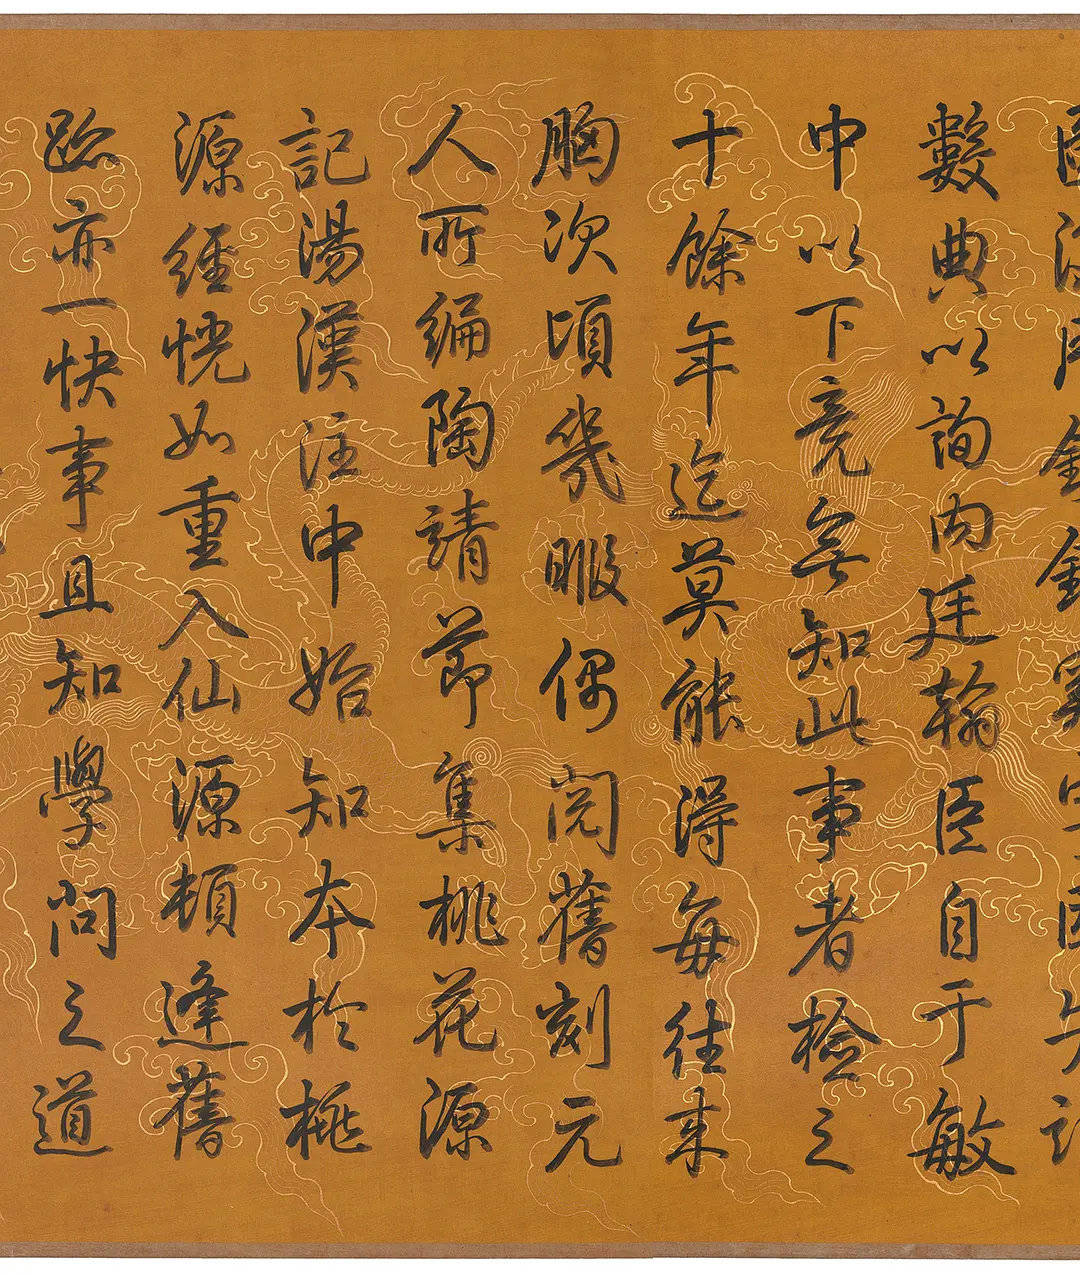 數典以詢內廷翰臣自于敏
中以下竟無知此事者檢之
十餘年迄莫能得每往來
胸次頃幾暇偶閱舊刻元
人所編陶靖節集桃花源
記湯漢注中始知本於桃
源經恍如重入仙源頓逢舊
跡亦一快事且知學問之道